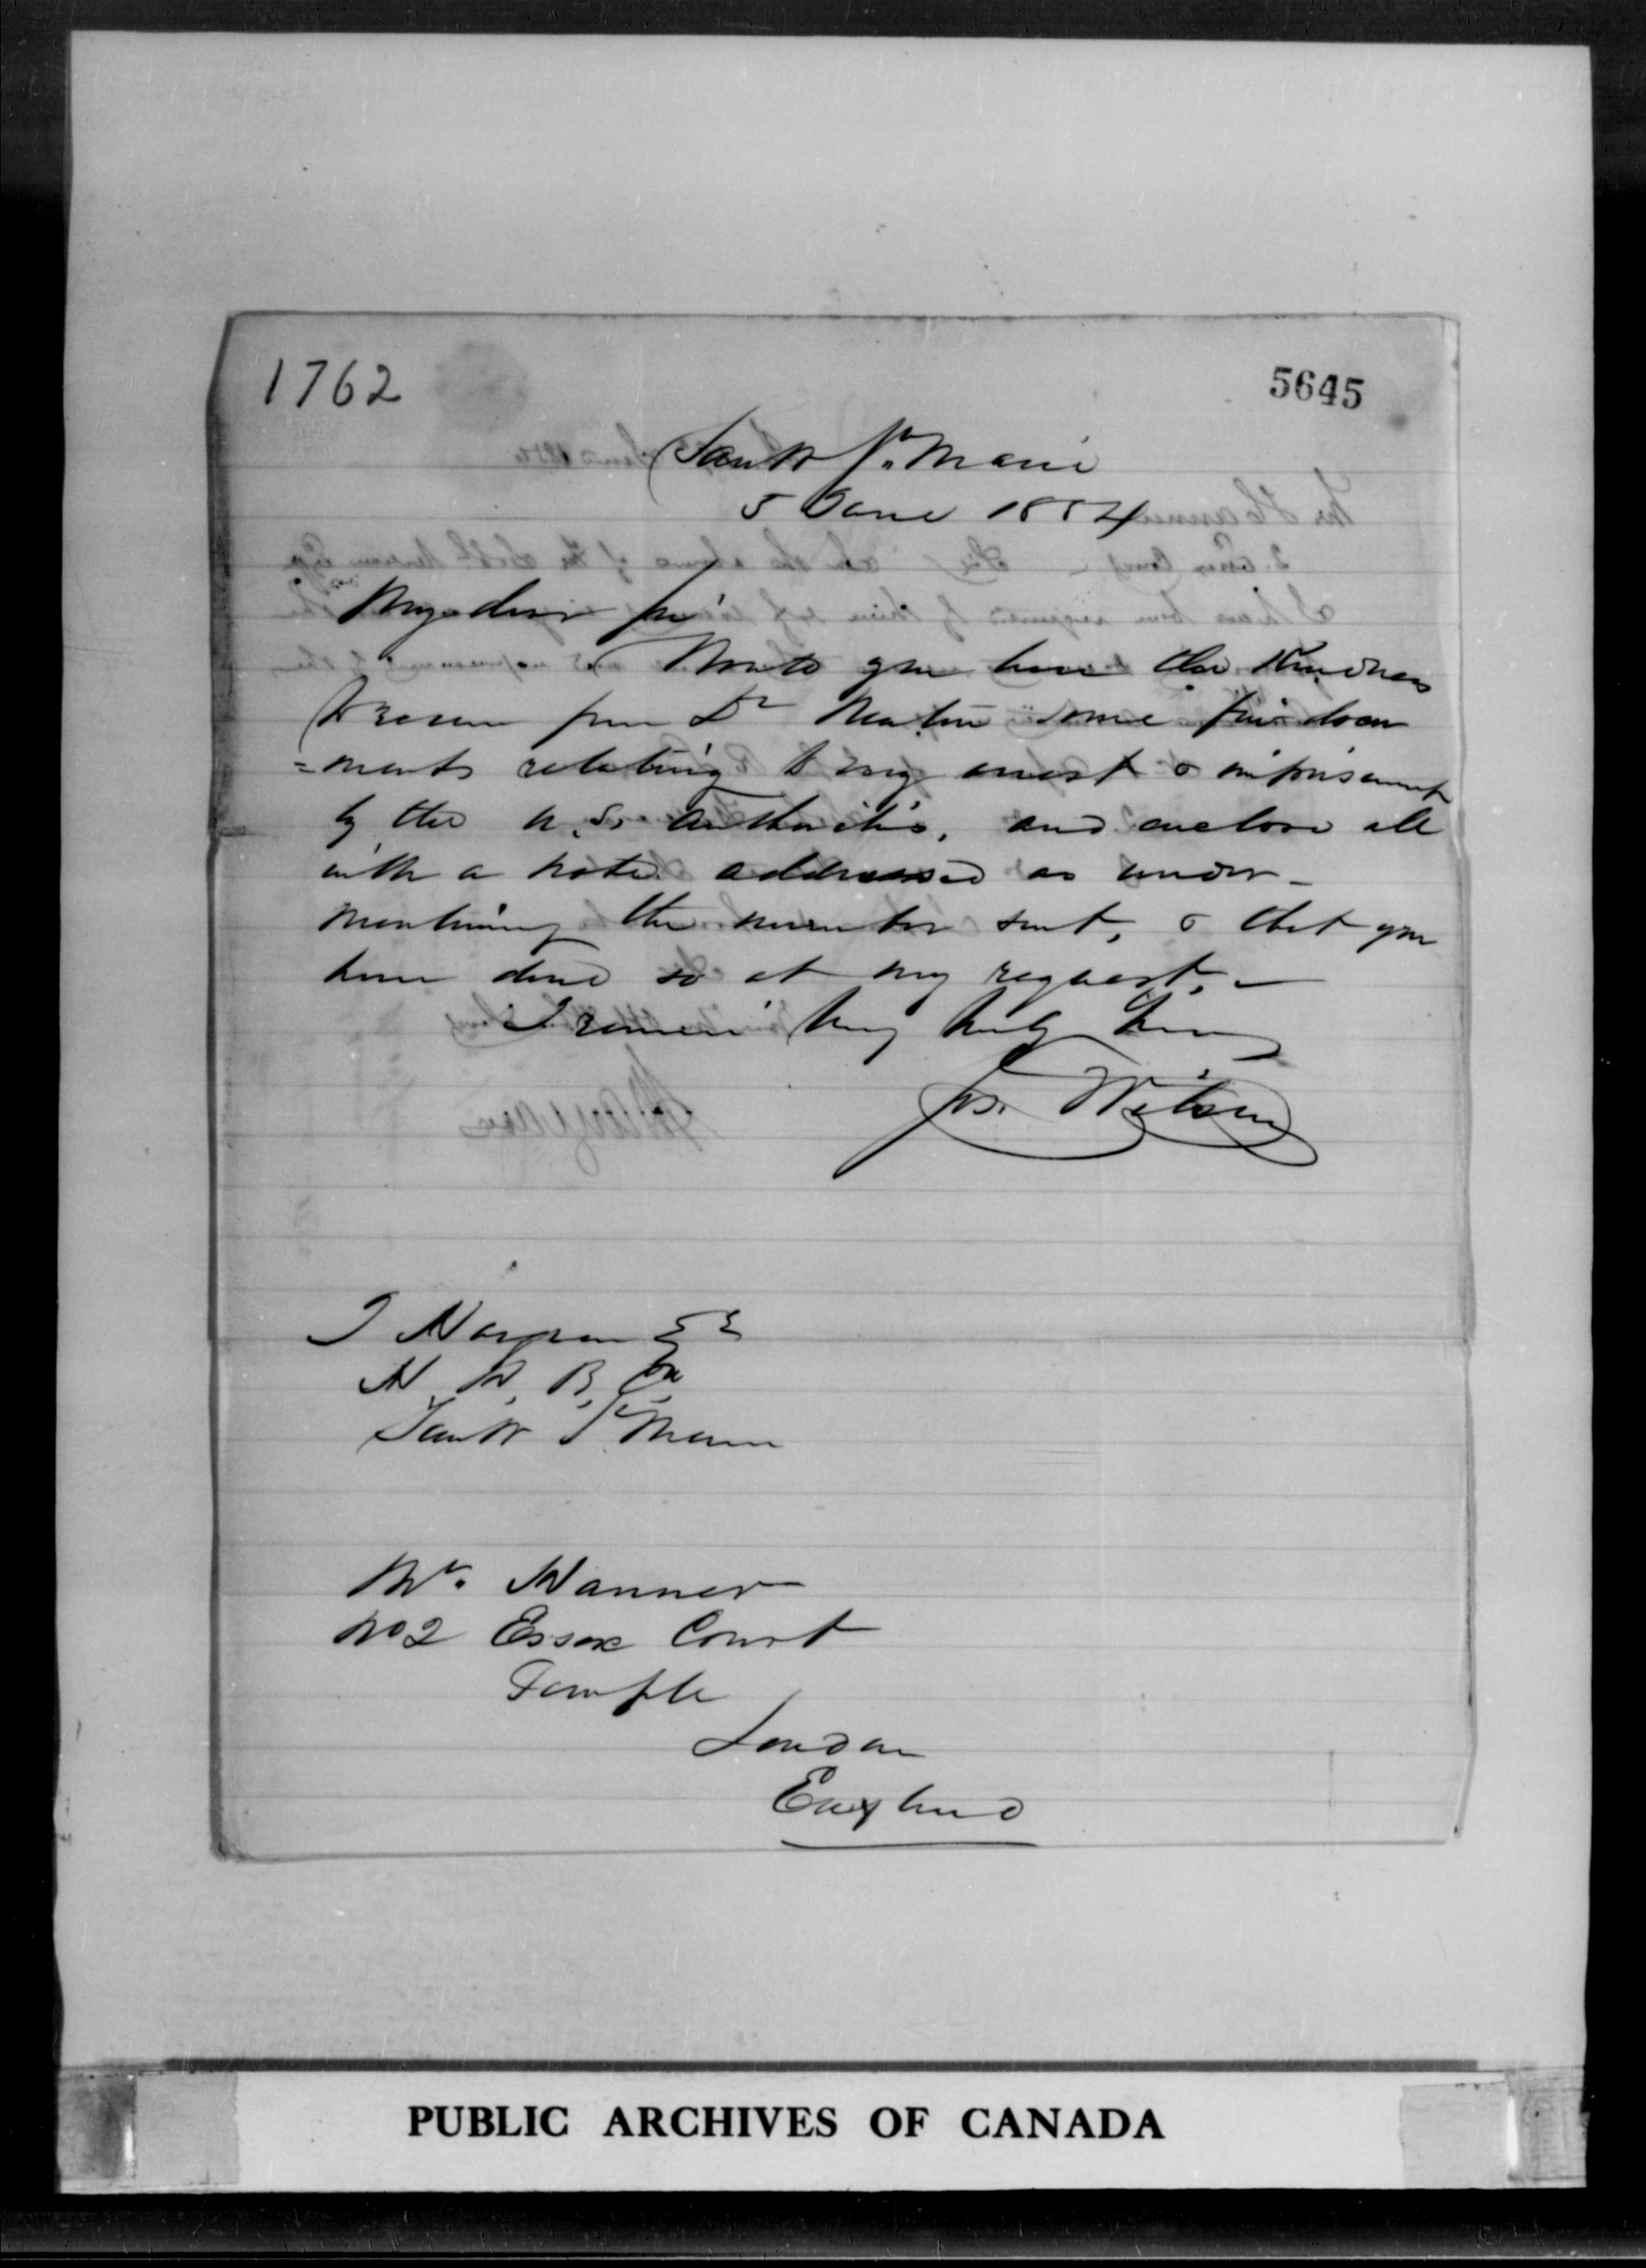 1762
5645
Sault St. Marie
5 June 1854
My dear Sir
Would you have the kindness
to receive from Dr some docu
=ments relating to my arrest & imprisonment
by the U. S. Authorities, and enclose all
with a note addressed as under -
mentioning the number sent, & that you
have done so at my request, -
I remain Very truly Yours
Jos. Wilson
J
H. B. Co
Sault St Marie
Mr. Hanner
No 2 Essex Court
Temple
London
England
PUBLIC ARCHIVES OF CANADA